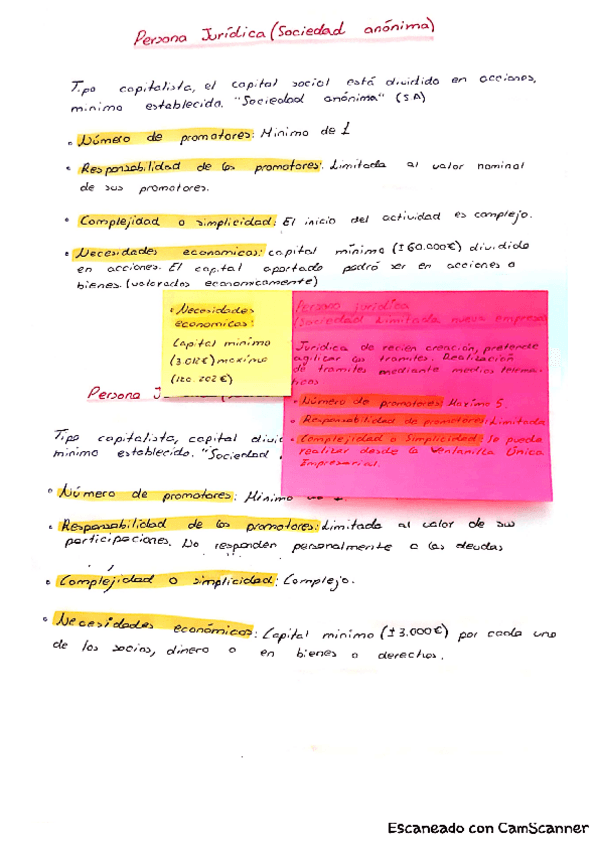 Persona Jurídica (Sociedad anónima)
Tipo capitalista, el capital social está dividido en acciones,
minimo establecido. "Sociedad anónima" (SA)
• Número de promotores: Minimo de 1
• Responsabilidad de los promotores: Limitada al valor nominal
de sus promotores.
• Complejidad o simplicidad: El inicio del actividad es complejo.
• Necesidades economicas: capital mínimo (±60.000€) dividido
en acciones. El capital aportado podrá ser en acciones o
bienes. (valorados economicamente)
• Necesidades
economicas:
Capital minimo
(3.012€) maximo
(120.202€)
Persona jurídica
(Sociedad Limitada nueva empresa)
Jurídica de recien creación, pretende
agilizar los tramites. Realización
de tramites mediante medios telema-
ticos
• Número de promotores: Maximo 5.
• Responsabilidad de promotores: Limitada
• Complejidad o Simplicidad: Se puede
realizar desde la Ventanilla Única
Empresarial.
Persona J
Tipo capitalista, capital divid
minimo establecido. "Sociedad
• Número de promotores: Minimo de 1.
• Responsabilidad de los promotores: Limitada al valor de sus
participaciones. No responden personalmente a las deudas
• Complejidad o simplicidad: Complejo.
• Necesidades económicas: Capital minimo (±3.000€) por cada uno
de los socios, dinero o en bienes o derechos.
Escaneado con CamScanner